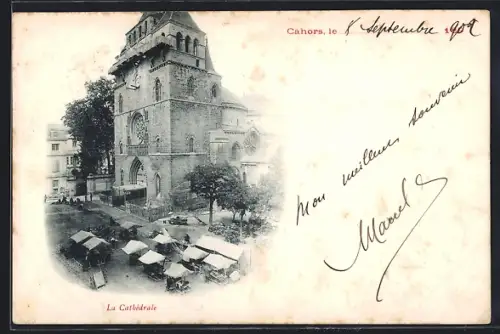 Cahors, le 8 Septembre 1902
Mon meilleur souvenir
Marcel
La Cathédrale